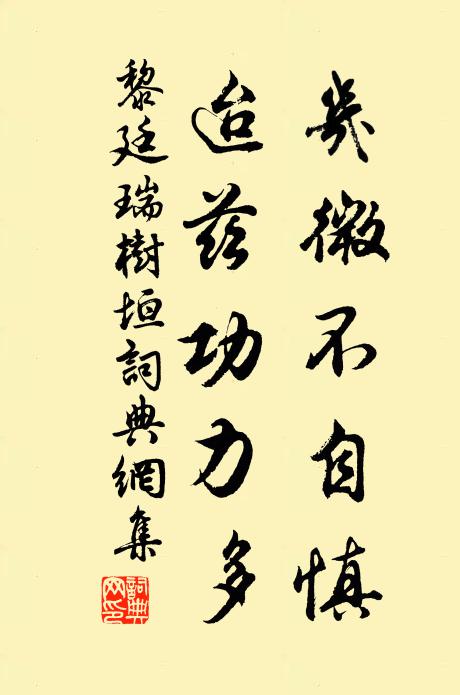 幾微不自慎
迨茲功力多
黎廷瑞樹垣詞典網集
詞典
网印